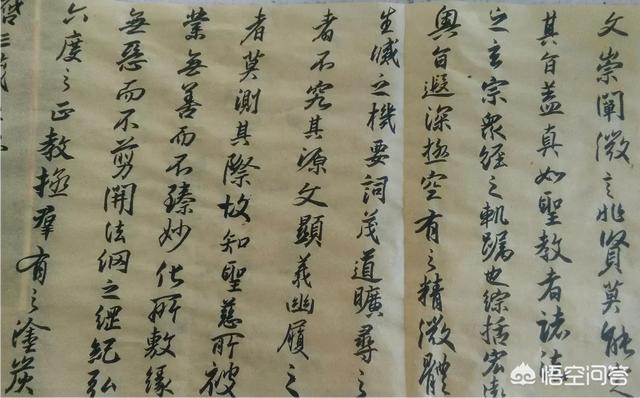 文崇闡微言非賢莫能定
其旨蓋真如聖教者諸法
之玄宗衆經之軌躅也綜括宏遠
奧旨遐深極空有之精微體
生滅之機要詞茂道曠尋之
者不究其源文顯義幽履之
者莫測其際故知聖慈所被
業無善而不臻妙化所敷緣
無惡而不剪開法網之綱紀弘
六度之正教拯羣有之塗炭
啓三藏
悟空问答